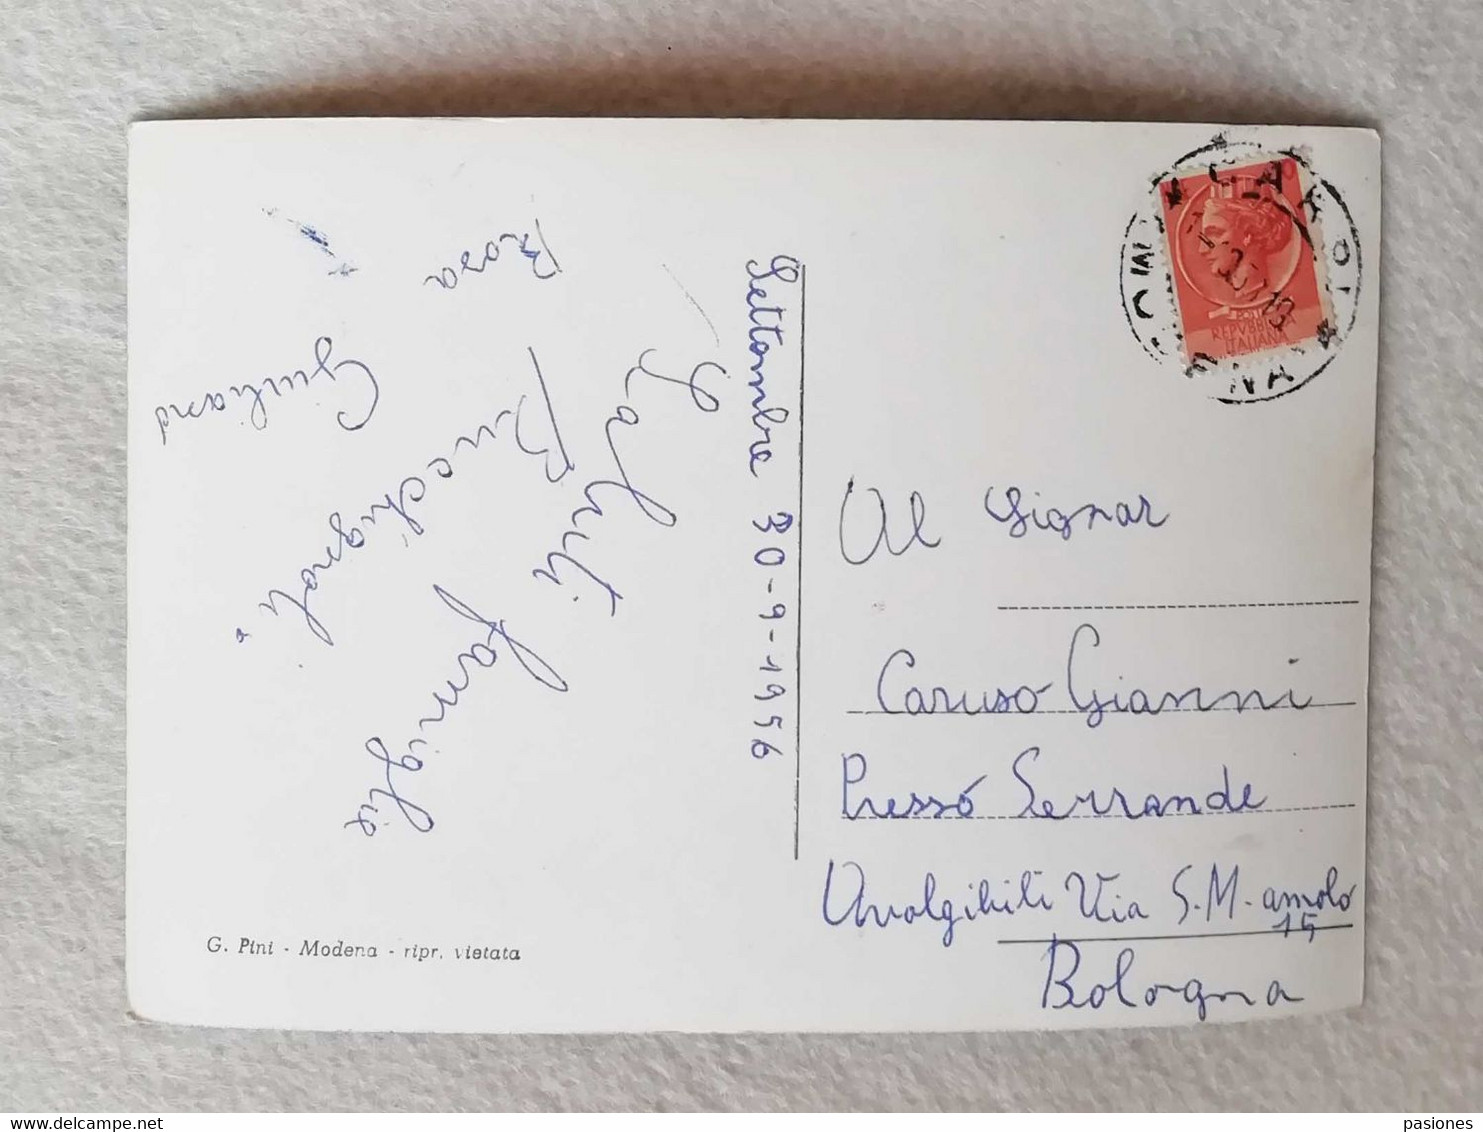 Settembre 30-9-1956
Saluti famiglie
Rucchignoli.
Rosa
Giuliano
G. Pini - Modena - ripr. vietata
REPVBBLICA
ITALIANA
Al Signor
Caruso Gianni
Presso Serrande
Avvolgibili Via S.M. amolo
15
Bologna
delcampe.net
pasiones